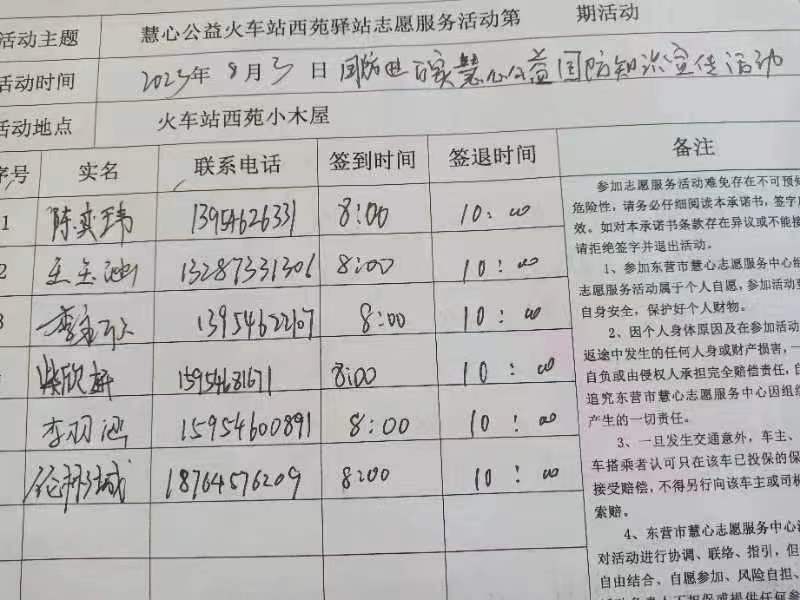 活动主题 慧心公益火车站西苑驿站志愿服务活动第 期活动
活动时间 2025年8月3日 国防 慧心公益国防知识宣传活动
活动地点 火车站西苑小木屋
序号 实名 联系电话 签到时间 签退时间 备注
1 陈奕玮 13954626331 8:00 10:00
2 王玉池 13287331301 8:00 10:00
3 李 13954622107 8:00 10:00
柴欣妍 15954681671 8:00 10:00
李羽鸿 15954600891 8:00 10:00
18764576209 8:00 10:00
参加志愿服务活动难免存在不可预
危险性，请务必仔细阅读本承诺书，签字
效。如对本承诺书条款存在异议或不能接
请拒绝签字并退出活动。
1、参加东营市慧心志愿服务中心组
志愿服务活动属于个人自愿，参加活动
自身安全，保护好个人财物。
2、因个人身体原因及在参加活动
返途中发生的任何人身或财产损害，一
自负或由侵权人承担完全赔偿责任，
追究东营市慧心志愿服务中心因组
产生的一切责任。
3、一旦发生交通意外，车主、
车搭乘者认可只在该车已投保的保
接受赔偿，不得另行向该车主或司机
索赔。
4、东营市慧心志愿服务中心
对活动进行协调、联络、指引，但
自由结合、自愿参加、风险自担、